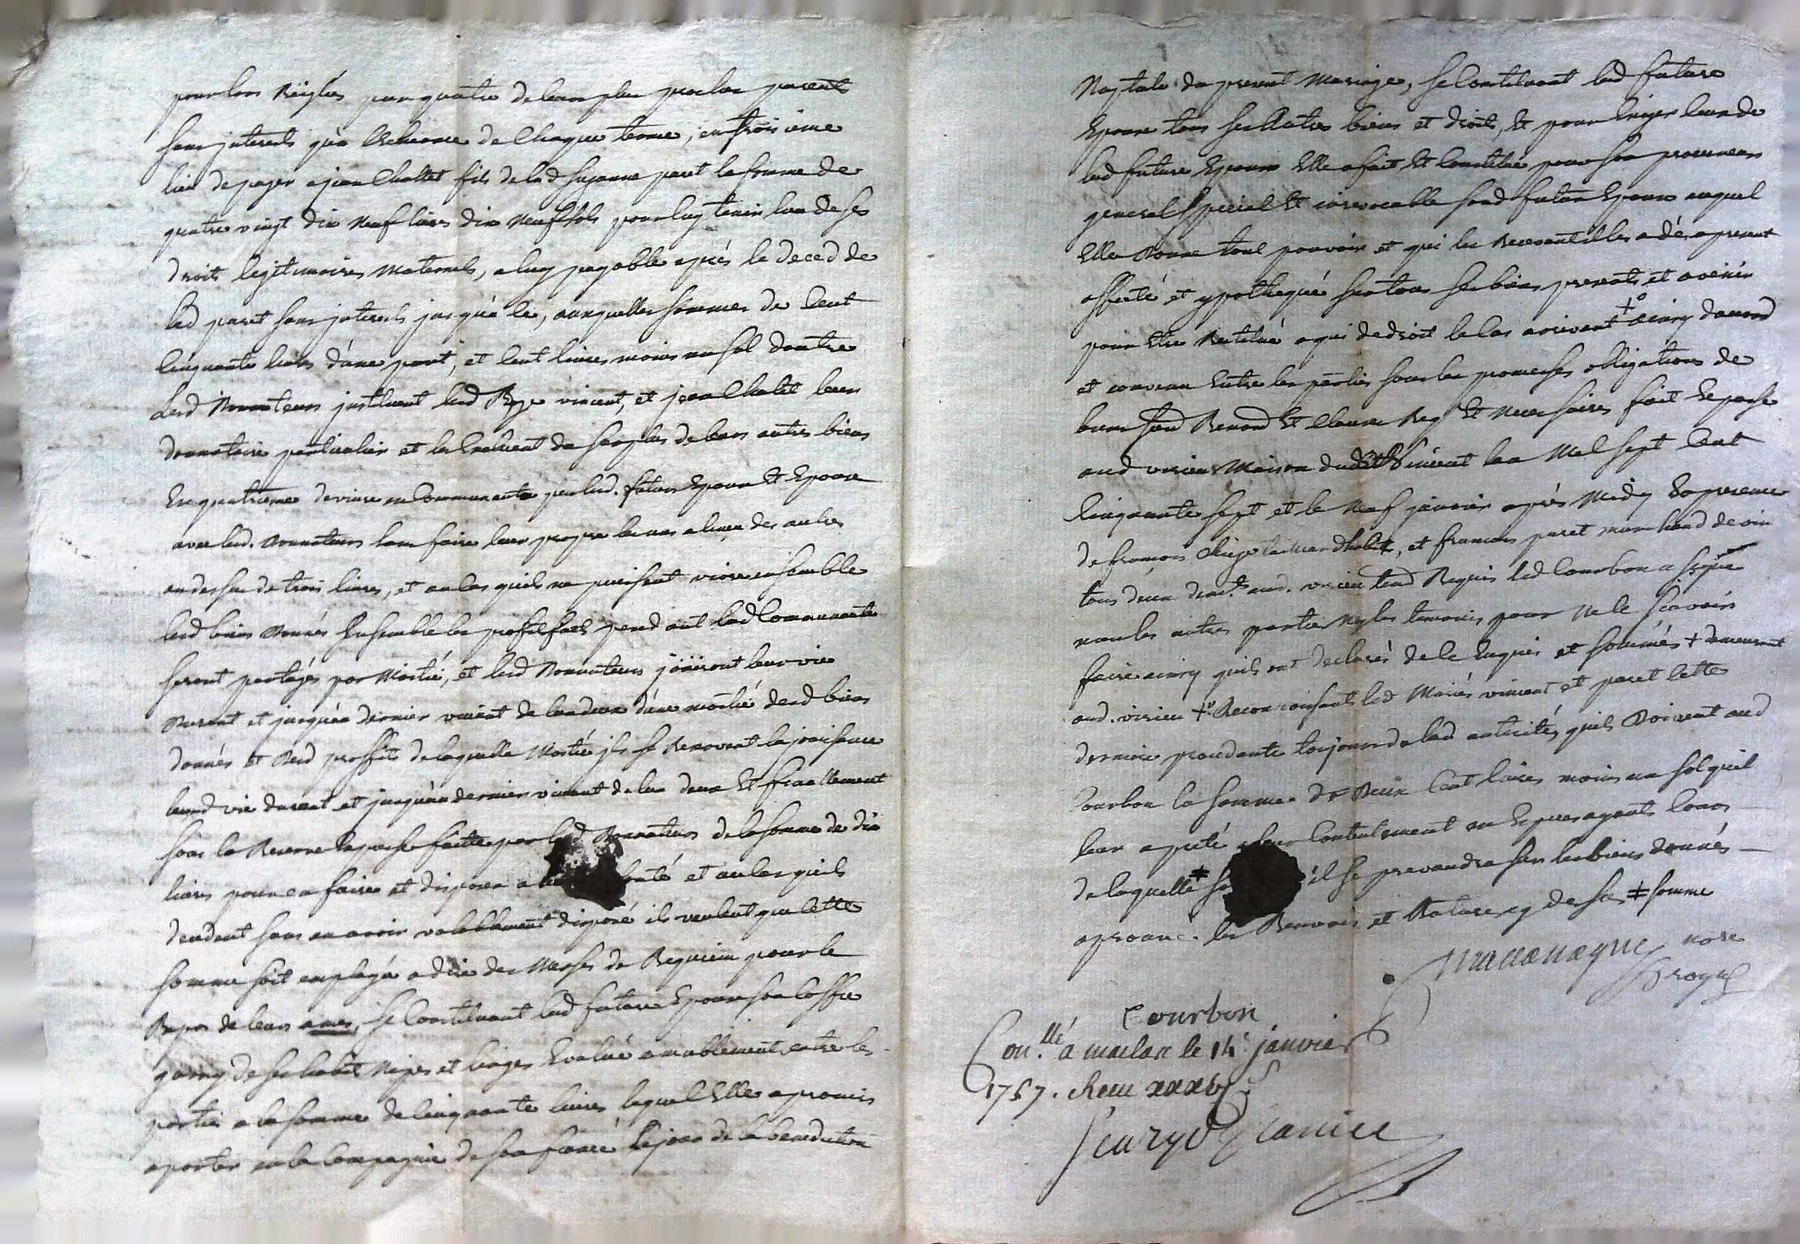 pour lors Réglés par quatre de leurs plus proches parents
sans jnterests qua lecheance de chaque terme, en troisieme
lieu de payer a jean Chaltet fils de lad suzanne paret la somme de
quatre vingt dix neuf livres dix neuf sols pour luy tenir lieu de ses
droits legitimaires maternels, a luy payable aprés le deced de
lad paret sans jnterests jusqu'a ce, auxquelles sommes de Cent
Cinquante livres d'une part, et Cent livres moins un sol dautre
lesd Donnateurs jnstituent lesd Roze vincent, et jean Chaltet leurs
donnataires particuliers et les Excluent du surplus de leurs autres biens
En quatrieme de vivre en Communauté par lesd. futurs Epoux et Epouse
avec lesd. Donnateurs sans faire leur propre les uns a linçu des autres
au dessus de trois livres, et au cas quils ne puissent vivre ensemble
lesd biens Donnés Ensemble les profits faits pendant lad Communauté
seront partagés par Moitié, et lesd Donnateurs joüiront leur vie
Durant et jusquau dernier vivant de leux deux d'une moitié desd biens
donnés et desd proffits de laquelle Moitié jls se Reservent la joüissance
leurd vie durant et jusquau dernier vivant de leux deux Et finallement
sous la Reserve Expresse faitte par lesd Donnateurs de la somme de dix
livres pour en faire et disposer a leur volonté et au cas quils
decedent sans en avoir valablement disposé ils veulent que cette
somme soit employée a dire des Messes de Requiem pour le
Repos de leurs ames, se Constituant lad future Epouse son coffre
garny de ses habits Nipes et linges Evalué amiablement entre les
parties a la somme de Cinquante livres lequel Elle a promis
aporter en la Compagnie de son fiancé le jour de la benediction
Nuptale du present Mariage, se Constituant lad future
Epouse tous ses Autres biens et droits, Et pour Exiger leux de
lad future Epouse Elle a fait Et Constitué pour son procureur
general special Et irrevocable sond futur Epoux auquel
Elle Donne tout pouvoir et qui les Recevant il les a dés a present
affecté et ypothequé sur tous ses biens presents et avenir
pour Etre Restitué a qui de droit le cas arrivant +° ainsy daccord
et convenu Entre les parties sous les promesses obligations de
biens Soud Renond Et Clause Req Et necessaires fait Et passé
aud virieu Maison dudit vincent lan Mil sept Cent
Cinquante sept et le Neuf janvier aprés Midy En presence
de françois et françois paret marchand de vin
tous deux demt aud. virieu tesd Requis led Courbon a signé
non les autres parties Ny les temoins pour ne le scavoir
faire ainsy quils ont declarés de ce Enquis et sommés + demeurant
aud. virieu +° Reconnoissants led Mariés vincent et paret cette
derniere procedante toujours de lad autorité, quils Doivent aud
Courbon la somme de Deux Cent livres moins un sol quil
leur a preté a leur Contentement en Especes ayants Cours
de laquelle ≠ il se prevaudra sur les biens donnés
aprouvé les Renvoys et Rature cy dessus ≠ somme
nore
royal
Courbon
Con.llé a maclas le 14e janvier
1757. Recu xxxvj s